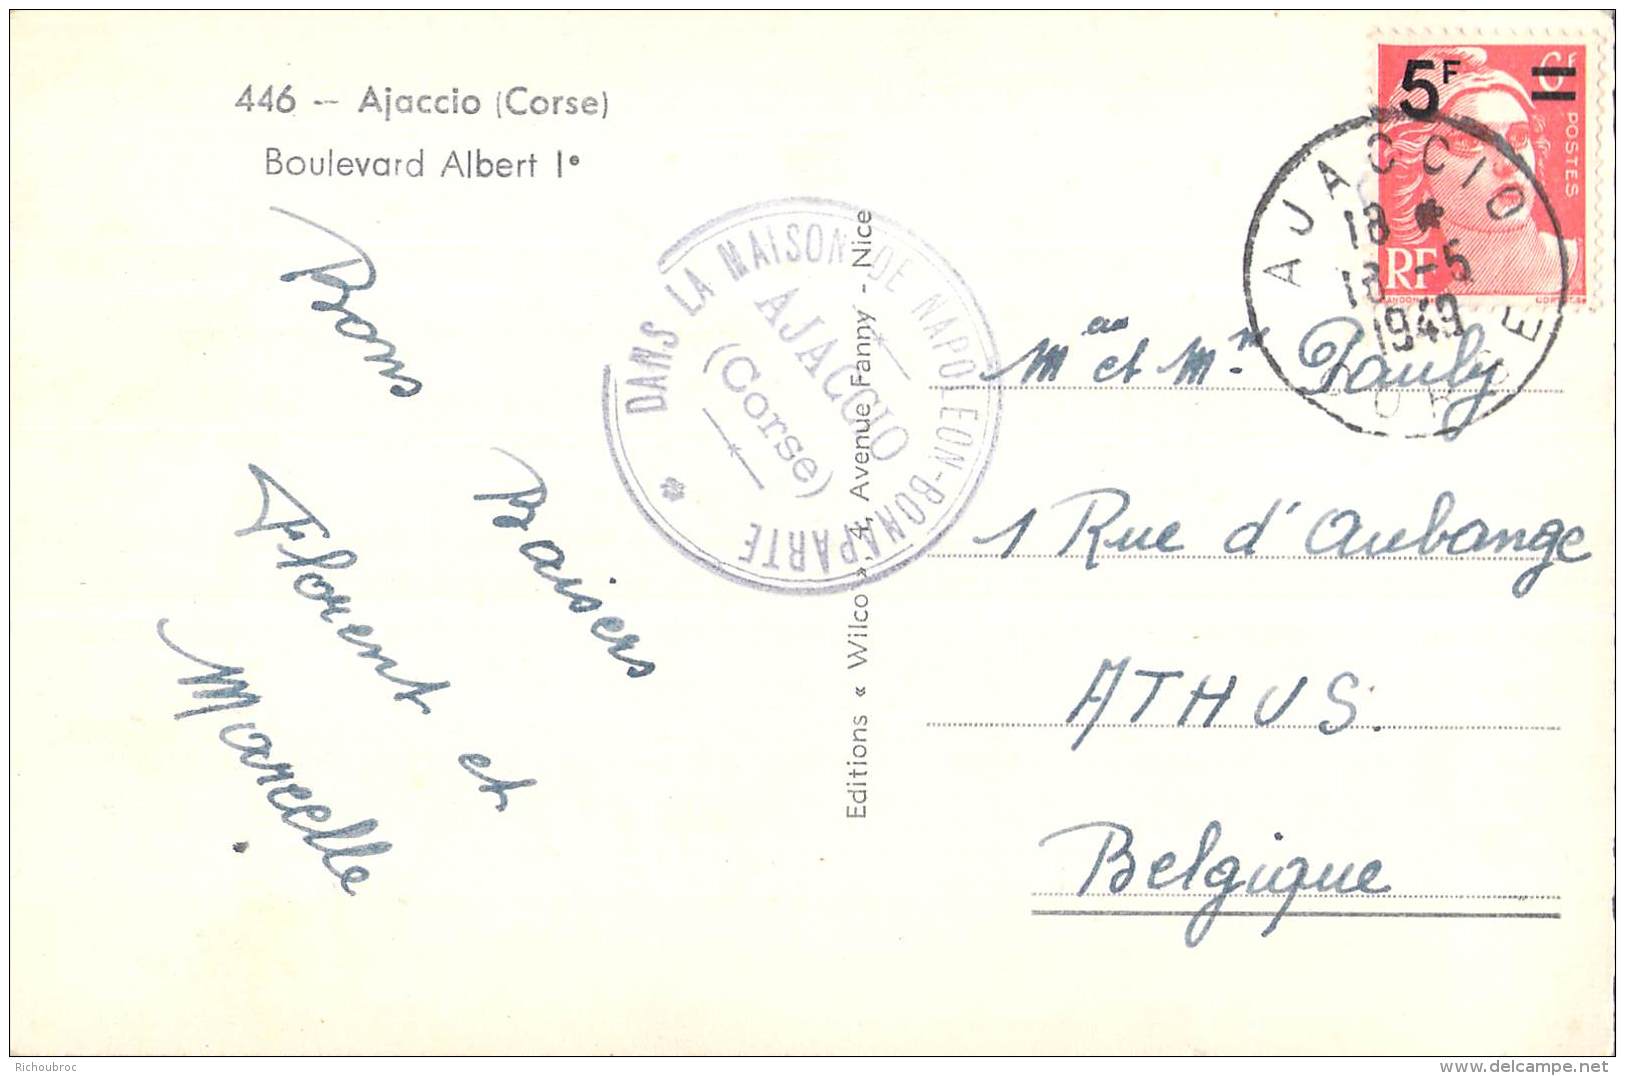 446 -- Ajaccio (Corse)
Boulevard Albert Iᵉ
Bons
Baisers
Florent et
Marcelle
DANS LA MAISON DE NAPOLEON-BONAPARTE
AJACCIO
(Corse)
Editions « Wilco », 4, Avenue Fanny - Nice
5F
6F
POSTES
RF
AJACCIO
18 *
-5
1949
CORSE
et Mr. Pauly
1 Rue d'Aubange
ATHUS.
Belgique
Richoubroc
delcampe.net